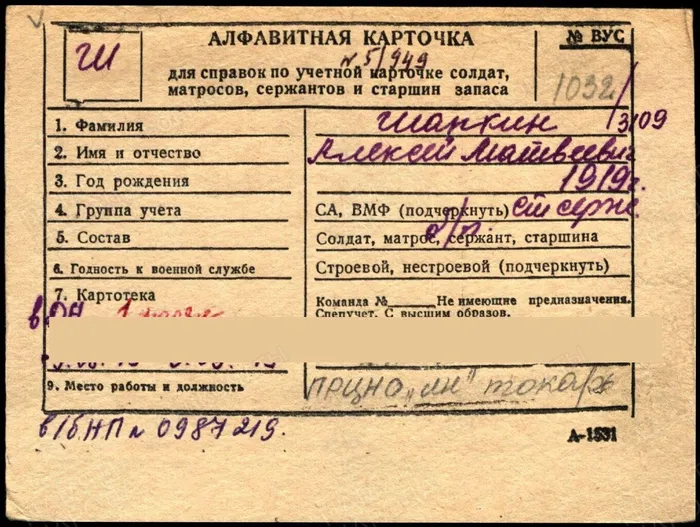 Ш
АЛФАВИТНАЯ КАРТОЧКА
№ 5/949
для справок по учетной карточке солдат,
матросов, сержантов и старшин запаса
№ ВУС
1032
3109
1. Фамилия Шапкин
2. Имя и отчество Алексей Матвеевич
3. Год рождения 1919г.
4. Группа учета СА, ВМФ (подчеркнуть) ст серж.
5. Состав Солдат, матрос, сержант, старшина
6. Годность к военной службе Строевой, нестроевой (подчеркнуть)
7. Картотека Команда № Не имеющие предназначения.
Спецучет. С высшим образов.
9. Место работы и должность токарь
в/б НП № 0987219.
А-1531